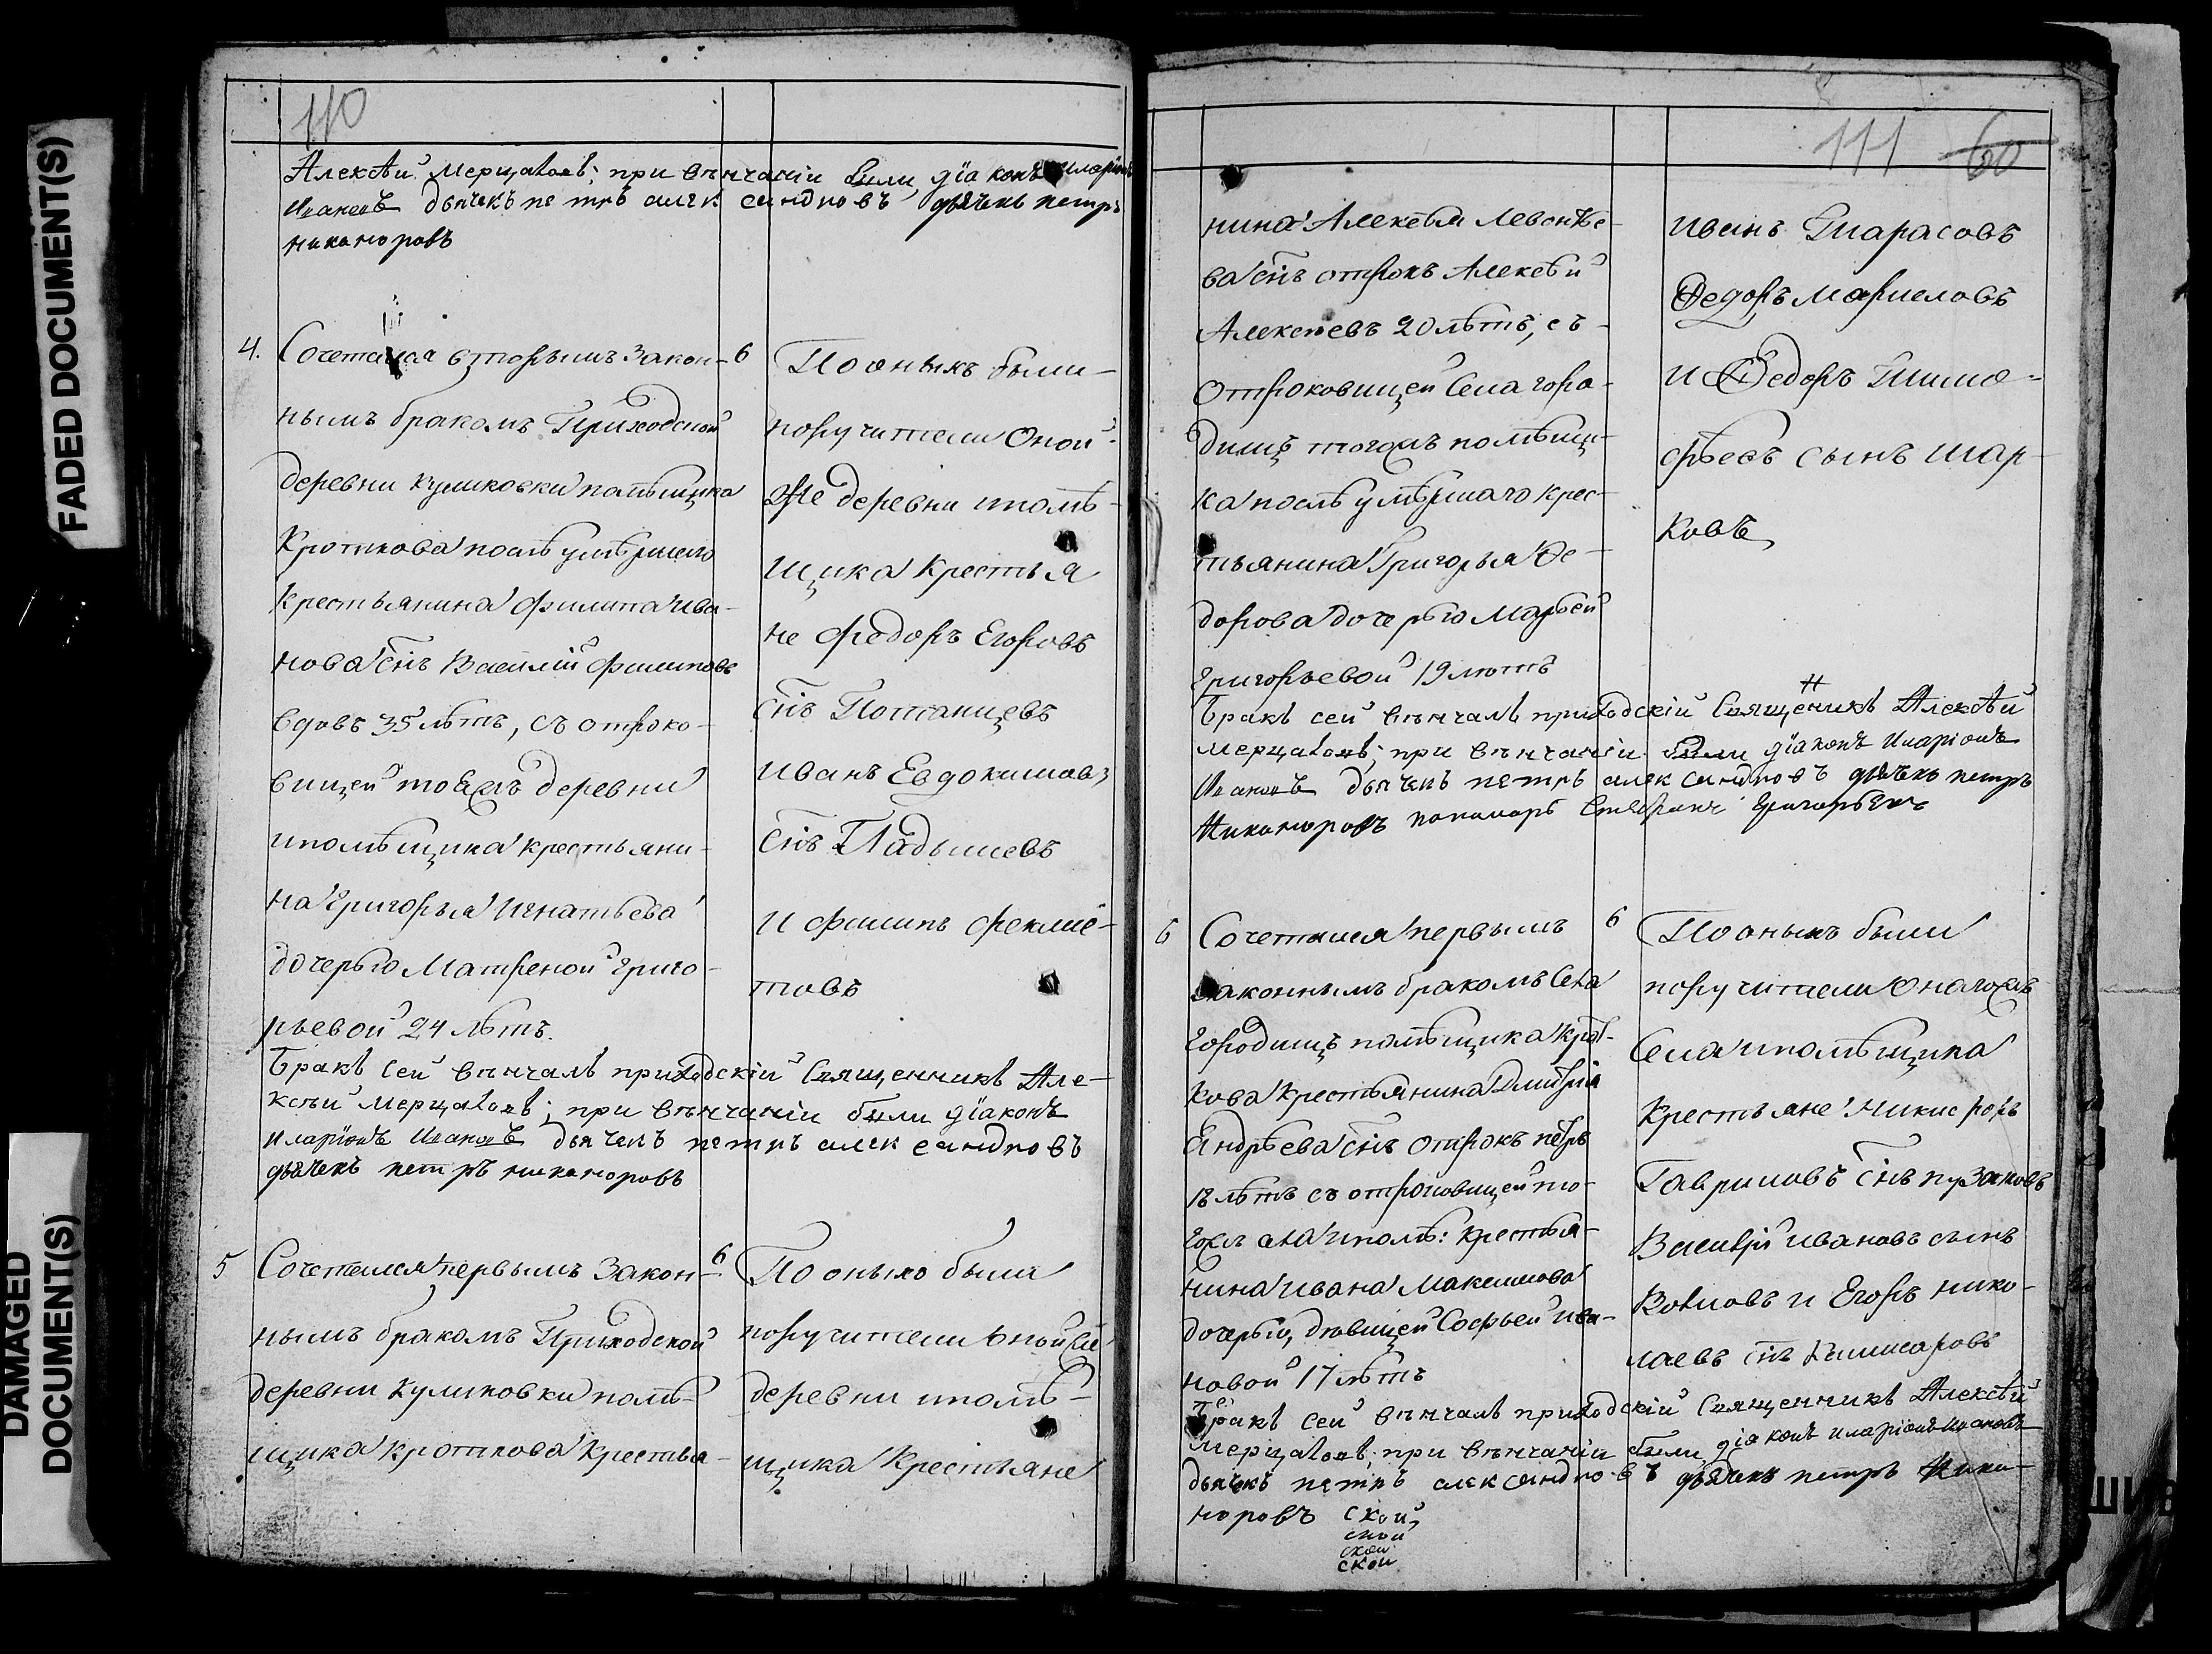 FADED DOCUMENT(S)
DAMAGED
DOCUMENT(S)
110
Алексѣй Мерцаловъ; при вѣнчаніи были діаконъ Иларіонъ
Ивановъ дьячекъ петръ александровъ дьячекъ петръ
никаноровъ
4. Сочетался вторымъ закон-
нымъ бракомъ Приходской
деревни куликовки помѣщика
Кроткова послѣ умѣршего
Крестьянина филипа ива-
нова снъ Василій филиповъ
вдовъ 35 лѣтъ, съ отроко-
вицей тоежъ деревни
ипомѣщика крестьяни-
на григорья игнатьева
дочерью Матреной григо-
рьевой 24 лѣтъ.
6
По оныхъ были
поручители Оной
же деревни ипомѣ-
щика крестья
не федоръ Егоровъ
снъ Потанцевъ
иванъ Евдокимовъ
снъ Гладышевъ
и филипъ
товъ
Бракъ сей вѣнчалъ приходскій Священникъ Але-
ксѣй Мерцаловъ; при вѣнчаніи были діаконъ
иларіонъ Ивановъ дьячекъ петръ александровъ
дьячекъ петръ никаноровъ
5 Сочетался первымъ закон-
нымъ бракомъ Приходской
деревни куликовки помѣ-
щика кроткова крестья-
6
По оныхъ были
поручители оной
деревни ипомѣ-
щика крестьяне
111 60
нина Алексѣя Левонтье-
ва снъ отрокъ Алексѣй
Алексѣевъ 20 лѣтъ, съ
отроковицей Села горо-
дищъ тогожъ помѣщи-
ка послѣ умѣршаго крес-
тьянина григорья Фе-
дорова дочерью Марьей
григорьевой 19 лѣтъ
иванъ Тарасовъ
Федоръ
и Федоръ Тимо-
фѣевъ сынъ шар-
ковъ
Бракъ сей вѣнчалъ приходскій Священникъ Алексѣй
Мерцаловъ; при вѣнчаніи были діаконъ Иларіонъ
Ивановъ дьячекъ петръ александровъ дьячекъ петръ
Никаноровъ пономарь Стефанъ Григорьевъ
6 Сочетался первымъ
законнымъ бракомъ Села
городищъ помѣщика крот-
кова крестьянина Дмитрія
Андрѣева снъ отрокъ петръ
18 лѣтъ съ отроковицей то-
гожъ села ипомѣ: крестья-
нина ивана Максимова
дочерью, дѣвицей Софьей ива-
новой 17 лѣтъ
6
По оныхъ были
поручители онагожъ
Села ипомѣщика
крестьяне Никифоръ
Гавриловъ снъ пузаковъ
Василій ивановъ сынъ
и Егоръ нико-
лаевъ снъ
Бракъ сей вѣнчалъ приходскій Священникъ Алексѣй
Мерцаловъ; при вѣнчаніи были діаконъ иларіонъ Ивановъ
дьячекъ петръ александровъ дьячекъ петръ Ника-
норовъ ской
ской
ской
ской